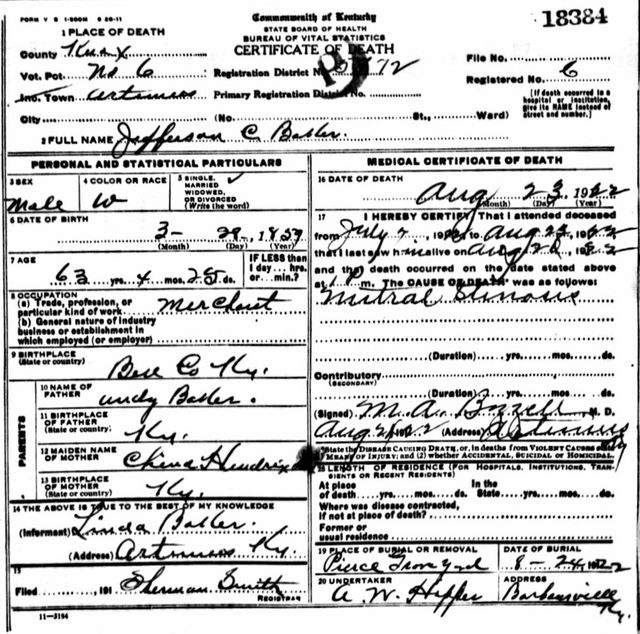 FORM V S 1-500M 6 20-11
Commonwealth of Kentucky
STATE BOARD OF HEALTH
BUREAU OF VITAL STATISTICS
CERTIFICATE OF DEATH
18384
1 PLACE OF DEATH
County Knox
Vot. Pct. No 6
Inc. Town Artimus
City
Registration District No.
Primary Registration District No.
(No. St., Ward)
File No.
Registered No. 6
(If death occurred in a hospital or institution, give its NAME instead of street and number.)
2 FULL NAME Jefferson C Basler.
PERSONAL AND STATISTICAL PARTICULARS
3 SEX
Male
4 COLOR OR RACE
W
5 SINGLE, MARRIED WIDOWED, OR DIVORCED (Write the word)
6 DATE OF BIRTH
3- 28- 1859
(Month) (Day) (Year)
7 AGE
63 yrs. 4 mos. 25 ds.
IF LESS than 1 day... hrs. or... min.?
8 OCCUPATION
(a) Trade, profession, or particular kind of work Merchant
(b) General nature of industry business or establishment in which employed (or employer)
9 BIRTHPLACE
(State or country) Bell Co Ky.
PARENTS
10 NAME OF FATHER Andy Basler.
11 BIRTHPLACE OF FATHER (State or country) Ky.
12 MAIDEN NAME OF MOTHER Hendrix
13 BIRTHPLACE OF MOTHER (State or country) Ky.
14 THE ABOVE IS TRUE TO THE BEST OF MY KNOWLEDGE
(Informant) Linda Basler.
(Address) Artimus Ky.
15
Filed 191 Sherman Smith
REGISTRAR
11-3184
MEDICAL CERTIFICATE OF DEATH
16 DATE OF DEATH
Aug 23 1922
(Month) (Day) (Year)
17 I HEREBY CERTIFY, That I attended deceased
from July 2, 1922 Aug 23 1922
that I last saw him alive on Aug 1922
and the death occurred on the date stated above
at 1 P m. The CAUSE OF DEATH was as follows:
Mitral Stenosis
(Duration) yrs. mos. ds.
Contributory
(SECONDARY)
(Duration) yrs. mos. ds.
(Signed) M. A. Bizzell M. D.
(Address) Artimus
State the DISEASE CAUSING DEATH, or, in deaths from VIOLENT CAUSES state (1) MEANS OF INJURY; and (2) whether ACCIDENTAL, SUICIDAL or HOMICIDAL.
18 LENGTH OF RESIDENCE (FOR HOSPITALS, INSTITUTIONS, TRANSIENTS OR RECENT RESIDENTS)
At place of death yrs. mos. ds. In the State yrs. mos. ds.
Where was disease contracted, if not at place of death?
Former or usual residence
19 PLACE OF BURIAL OR REMOVAL
Pierce Grave Yd
DATE OF BURIAL
8-24-1922
20 UNDERTAKER
A. W. Hopper
ADDRESS
Barbourville Ky.